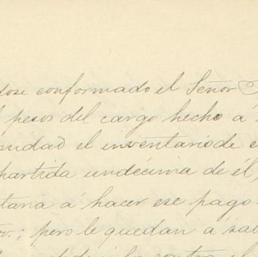 dose conformado el Señor
pesos del cargo hecho á
el inventario de
partida undécima de él,
á hacer ese pago
; pero le quedan á